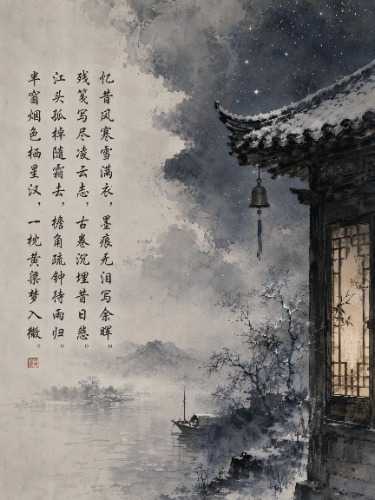 忆昔风寒雪满衣，墨痕无泪写余晖。
残笺写尽凌云志，古卷沉埋昔日悲。
江头孤棹随霜去，檐角疏钟待雨归。
半窗烟色栖星汉，一枕黄粱梦入微。